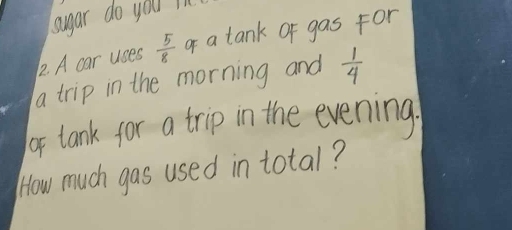 sugar do you
2. A car uses 5/8 of a tank of gas for
a trip in the morning and 1/4
of tank for a trip in the evening.
How much gas used in total?